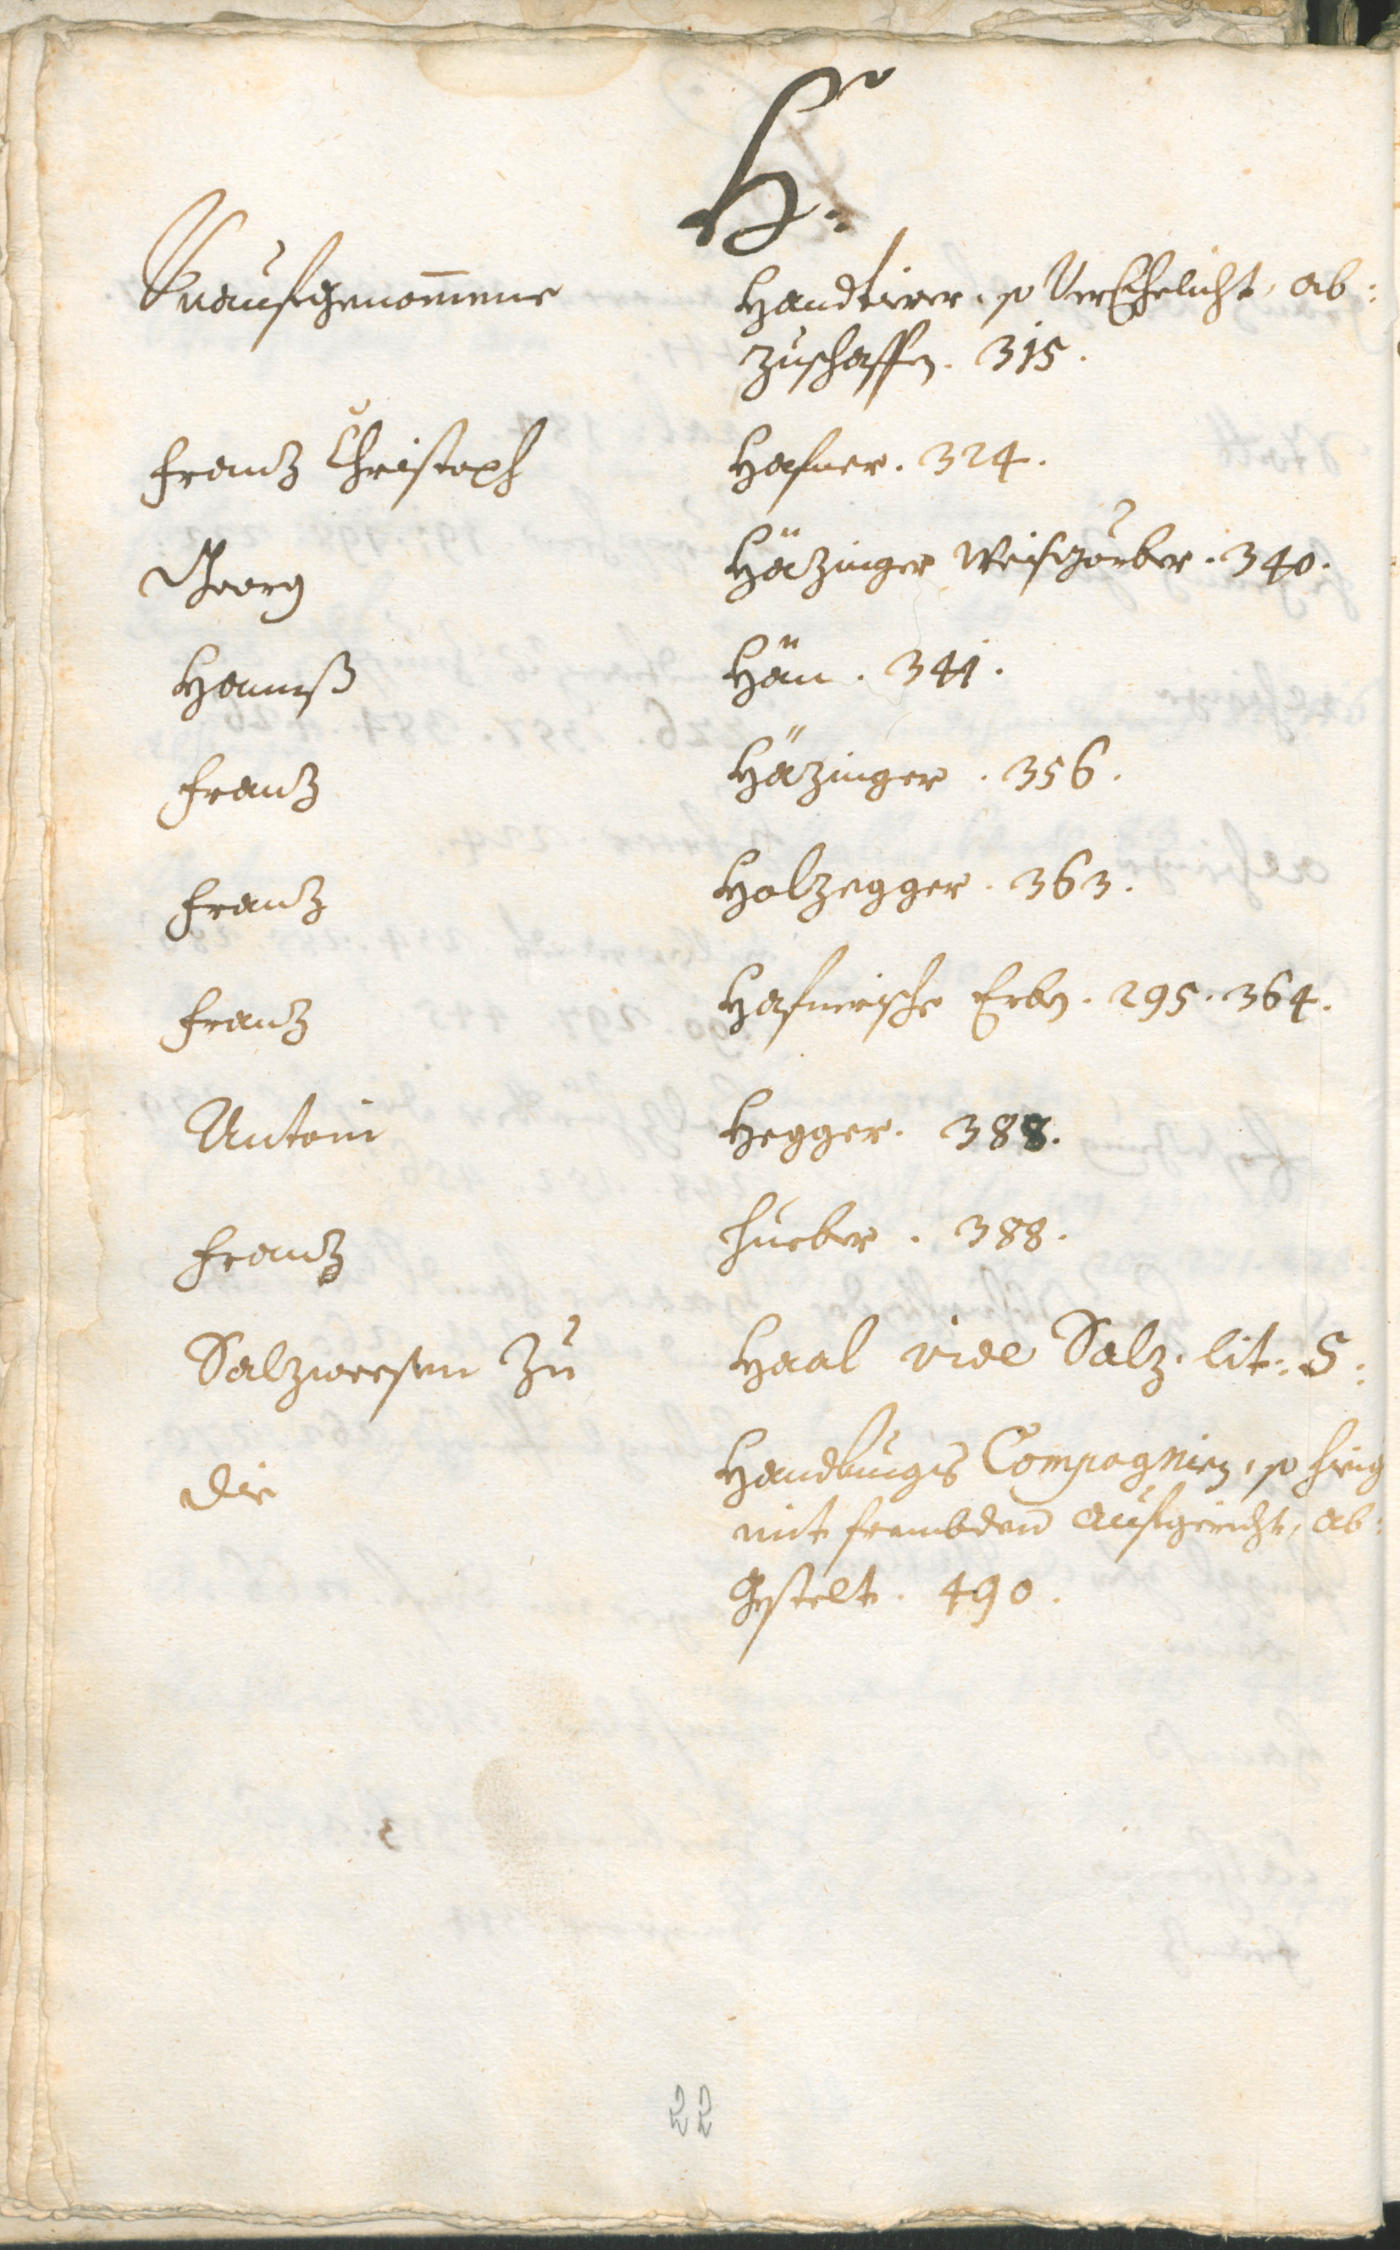 H:
Unaufgenom̄ene Handtirer, so VerEhelicht, ab:
zuschaffen. 315.
Frantz Christoph Hafner. 324.
Georg Häzinger Weisgärber. 340.
Hannß Hän. 341.
Frantz Häzinger. 356.
Frantz Holzegger. 363.
Frantz Hafnerische Erben. 295. 364.
Antoni Hegger. 388.
Frantz Hueber. 388.
Salzweesen Zu Haal vide Salz. lit: S:
Die Handlungs Compagnien, so hieig
mit frembden aufgericht, ab:
gestelt. 490.
22